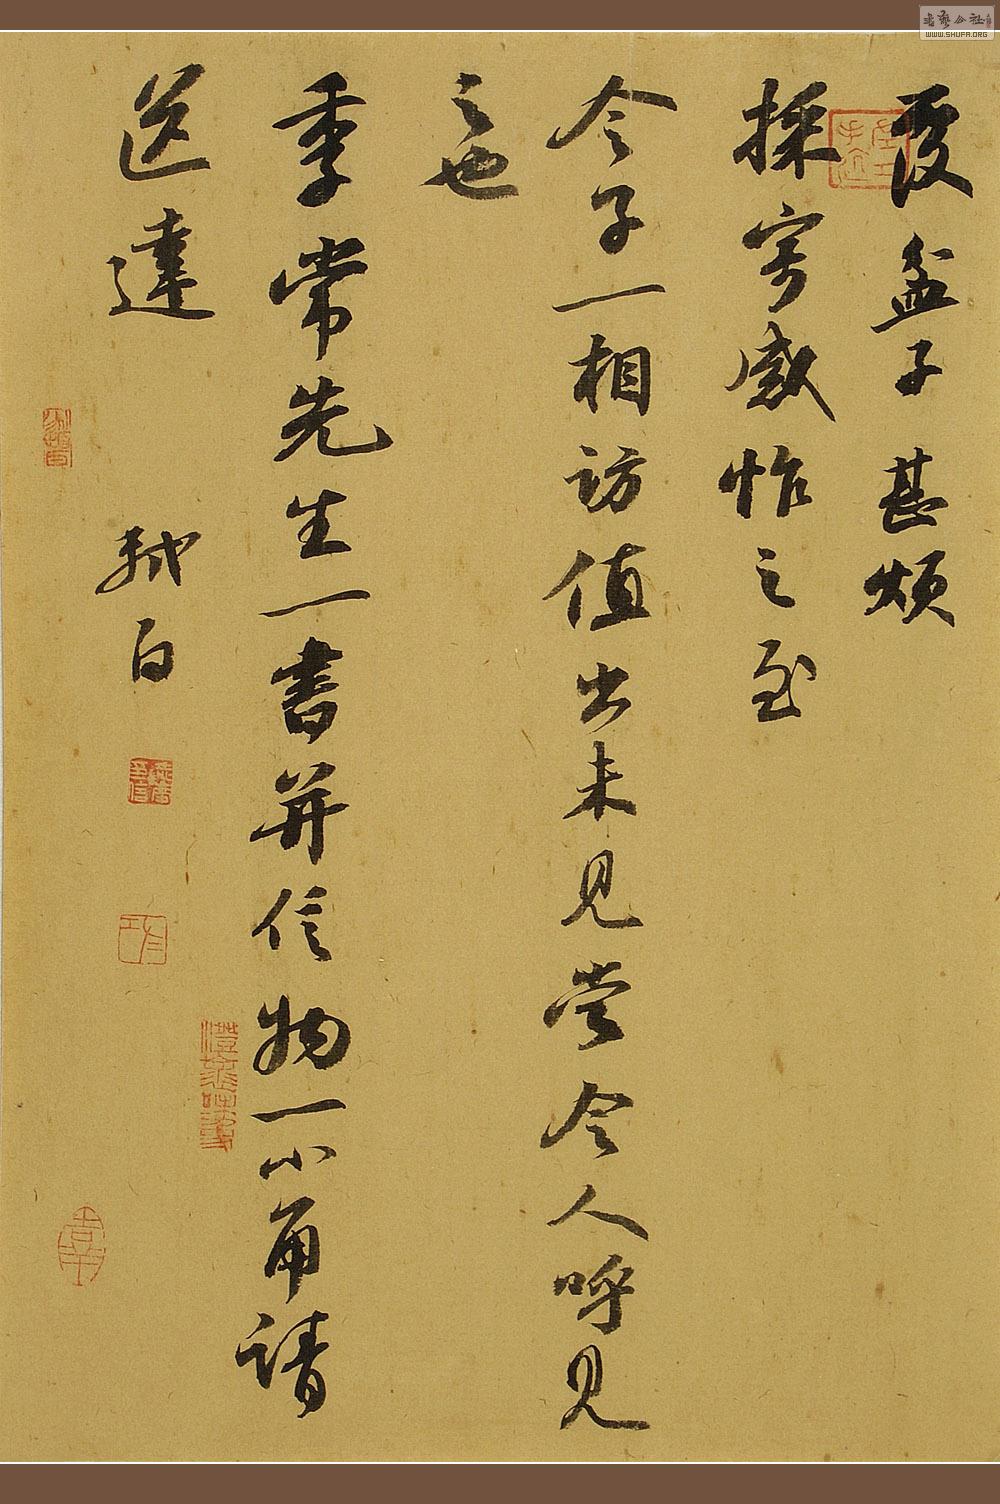 覆盆子甚煩
採寄感怍之至
令子一相訪值出未見當令人呼見
之也
季常先生一書并信物一小角請
送達
軾白
WWW.SHUFA.ORG